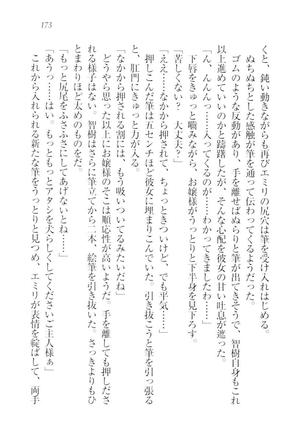 173
くと、鈍い動きながらも再びエミリの尻穴は筆を受け入れはじめる。
ぬちぬちとした感触が筆を通って伝わってくるようだった。
ゴムのような反動があり、手を離せばぬらりと筆が出てきそうで、智樹自身もこれ
以上進めていいものかと躊躇したが、そんな心配を彼女の甘い吐息が遮った。
「ん、んんんっ……入ってくるのが……わかってきましたわ……」
下唇をきゅっと噛みながら、お嬢様がうっとりと下半身を見下ろす。
「苦しくない？　大丈夫？」
「ええ……なかから押されて、ちょっときついけど、でも平気……」
と、肛門にきゅっと力が入る。
押しこんだ筆は五センチほど彼女に埋まりこんでいた。引き抜こうと筆を引っ張る
「なかから押される割には、もう吸いついてるみたいだね」
どうやら思った以上にお嬢様のそこは順応性が高いようだ。手を離しても押しださ
れる様子はない。智樹はさらに筆立てから二本、絵筆を引き抜いた。さっきよりもひ
とまわりほど太めのものだ。
「もっと尻尾をふさふさにしてあげないとね……」
「あうっ……はい……もっともっとアタシを犬らしくしてくださいご主人様ぁ」
これから入れられる新たな筆をうっとりと見つめ、エミリが表情を綻ばして、両手